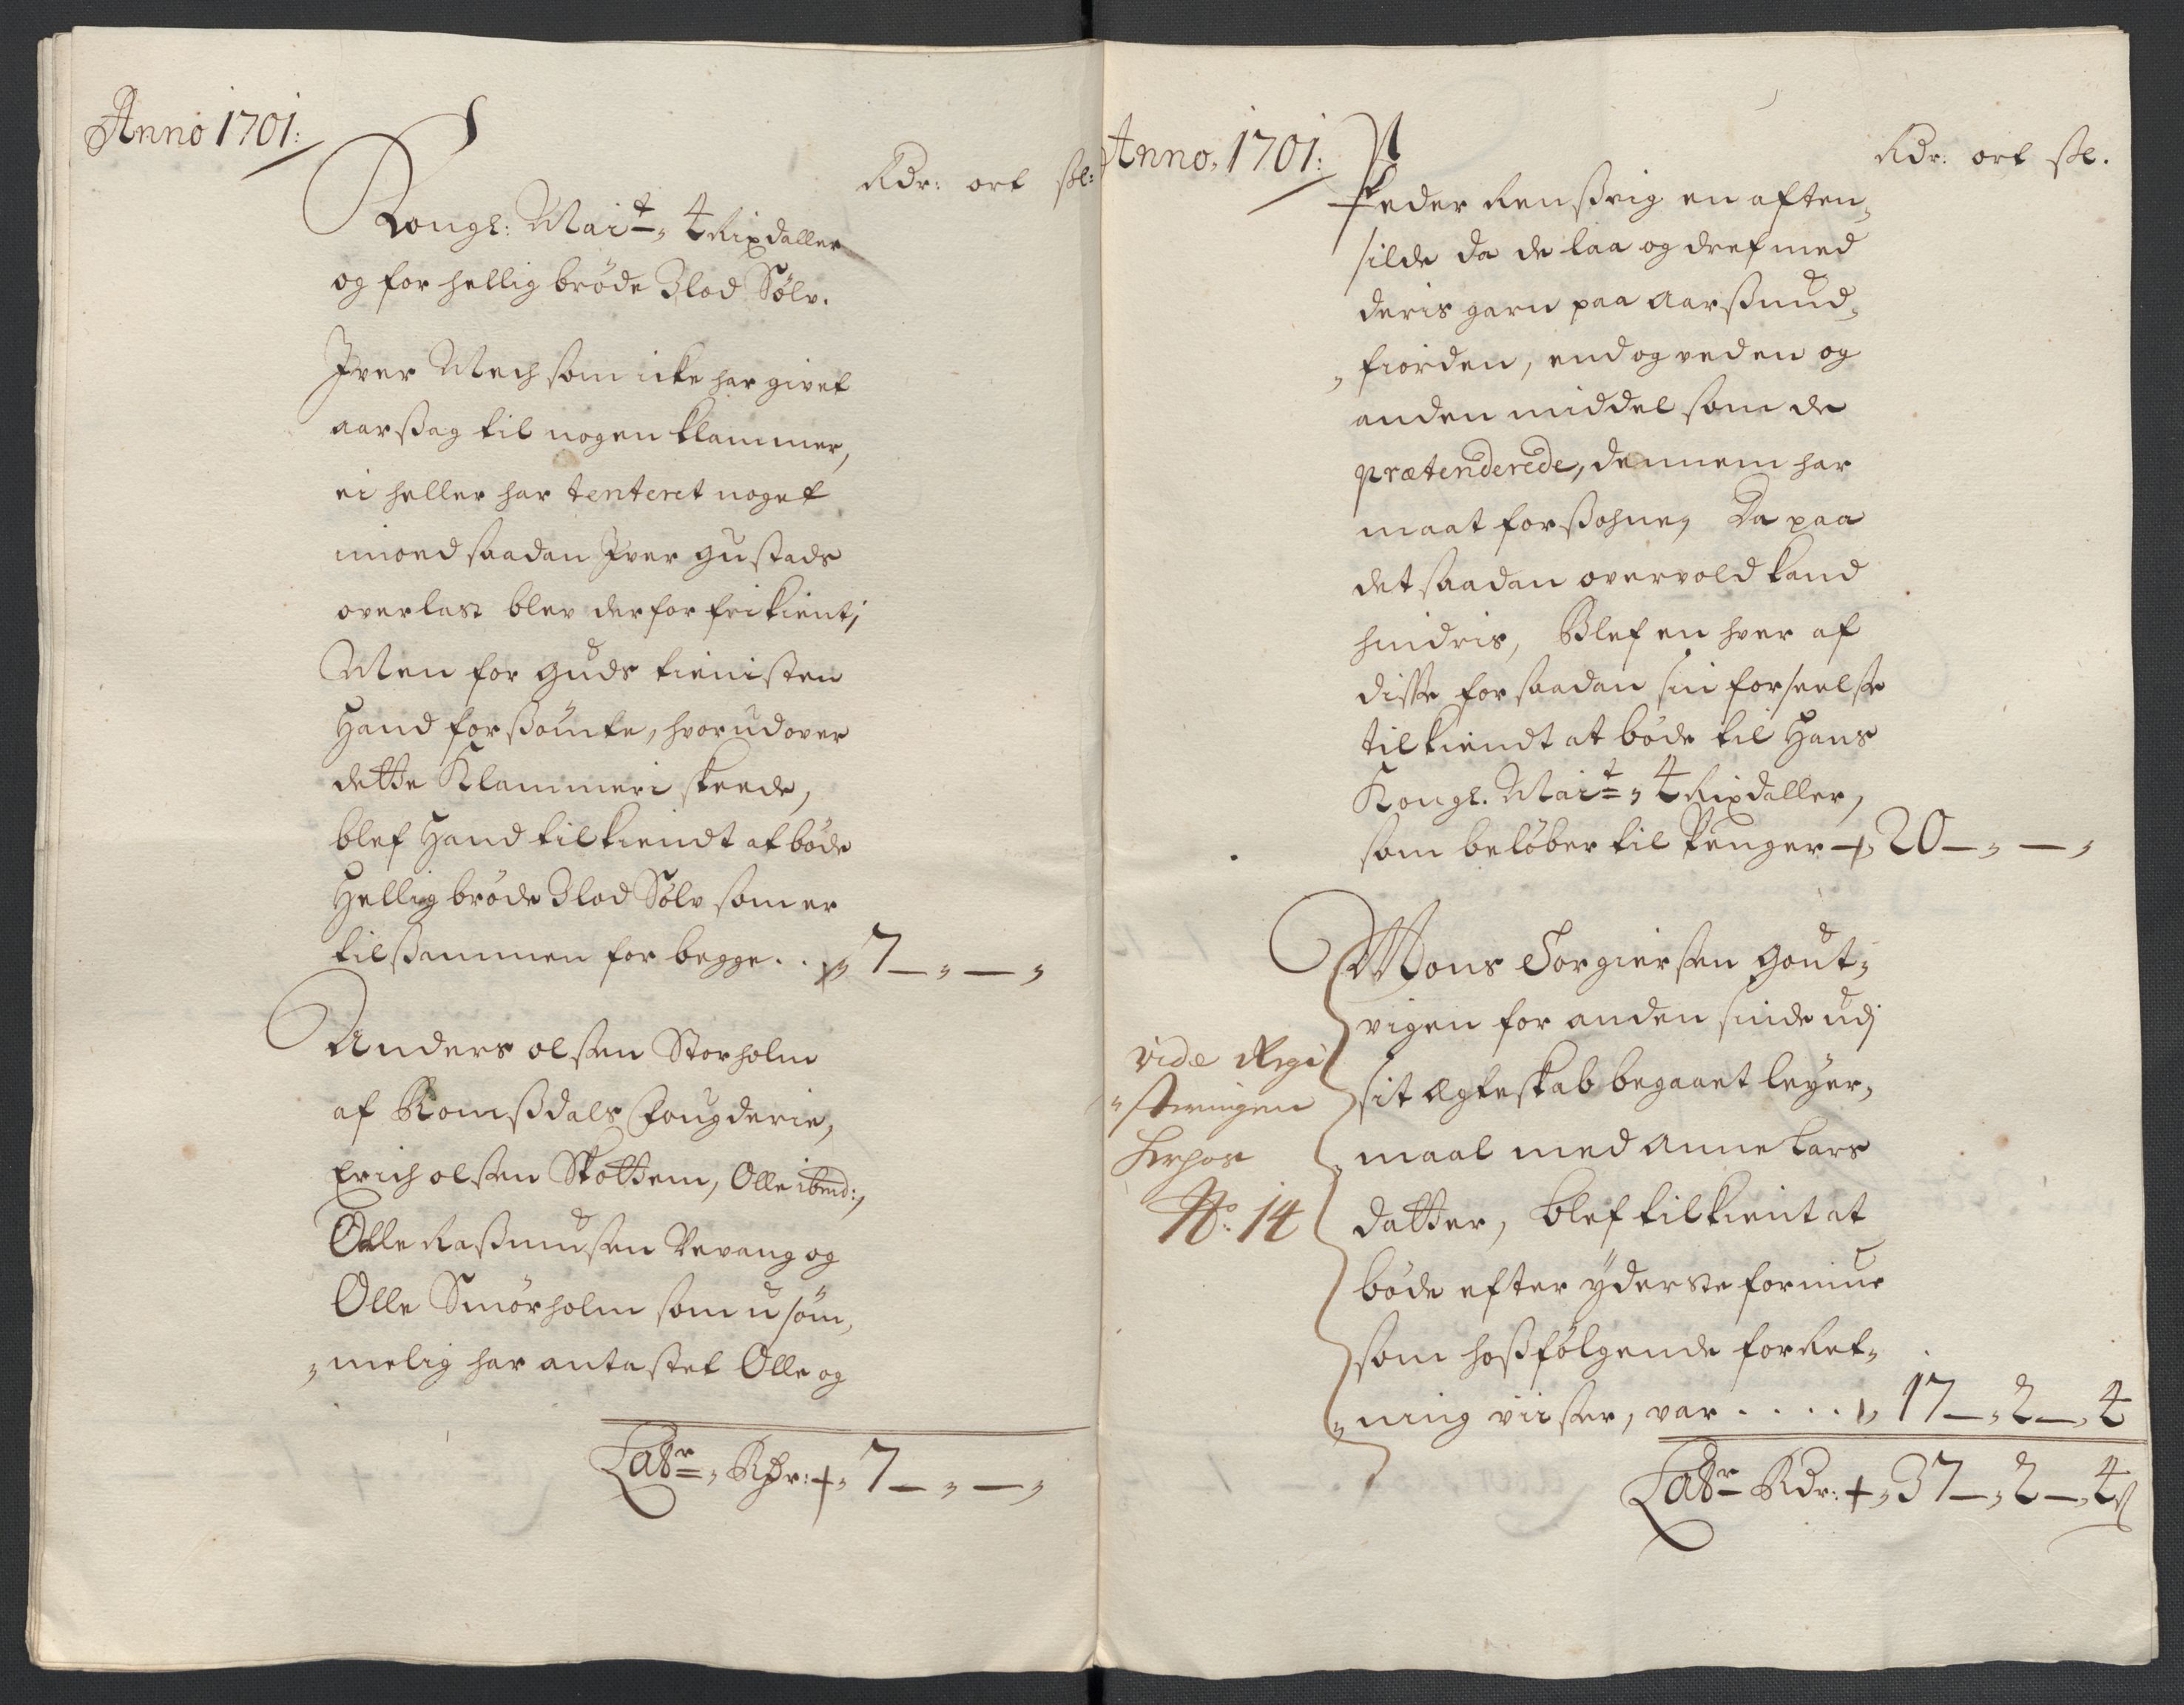 Anno 1701:
Rdr: ort sk:
Kongl: Mai:t 4 Rixdaller
og for hellig brøde 3 lod Sølv.
Iver Mech som icke har givet
aarßag til nogen klammer,
ei heller har tenteret noget
imoed saadan Iver Gustads
overlast blev derfor frikient;
Men for Guds tienisten
Hand forßømte, hvorudover
dette Klammeri skeede,
blef Hand tilkiendt at bøde
Hellig brøde 3 lod Sølv som er
tilßammen for begge . . 7 – „ – „
Anders olßen Storholm
af Romßdals Fougderie,
Erich olßen Skottem, Olle ibmd:,
Olle Raßmußen Vevang og
Olle Smörholm som usøm„
„melig har antastet Olle og
Latr „ Rdr: 7 – „ – „
Anno 1701:
Rdr: ort sk.
Peder Renßvig en aften„
silde da de laa og dref med
deris garn paa Aarßund„
„fiorden, end og ved en og
anden middel som de
prætenderede, dennem har
maat forßohne, Da paa
det saadan overvold kand
hindris, Blef en hver af
disse for saadan sin forseelße
tilkiendt at bøde til Hans
Kongl. Mai:t „ 4 Rixdaller,
som beløber til Penger 20 – „ – „
Mons Torgierßen Gout„
vigen for anden sinde udj
sit Egteskab begaaet leyer„
„maal med Anne Lars
datter, blef tilkient at
bøde efter yderste formue
som hoßfølgende forret„
„ning viißer, var . . . . 17 – „ 2 – „ 4
vide Regi
„steringen
herhos
No. 14
Latr Rdr: 37 – „ 2 – „ 4